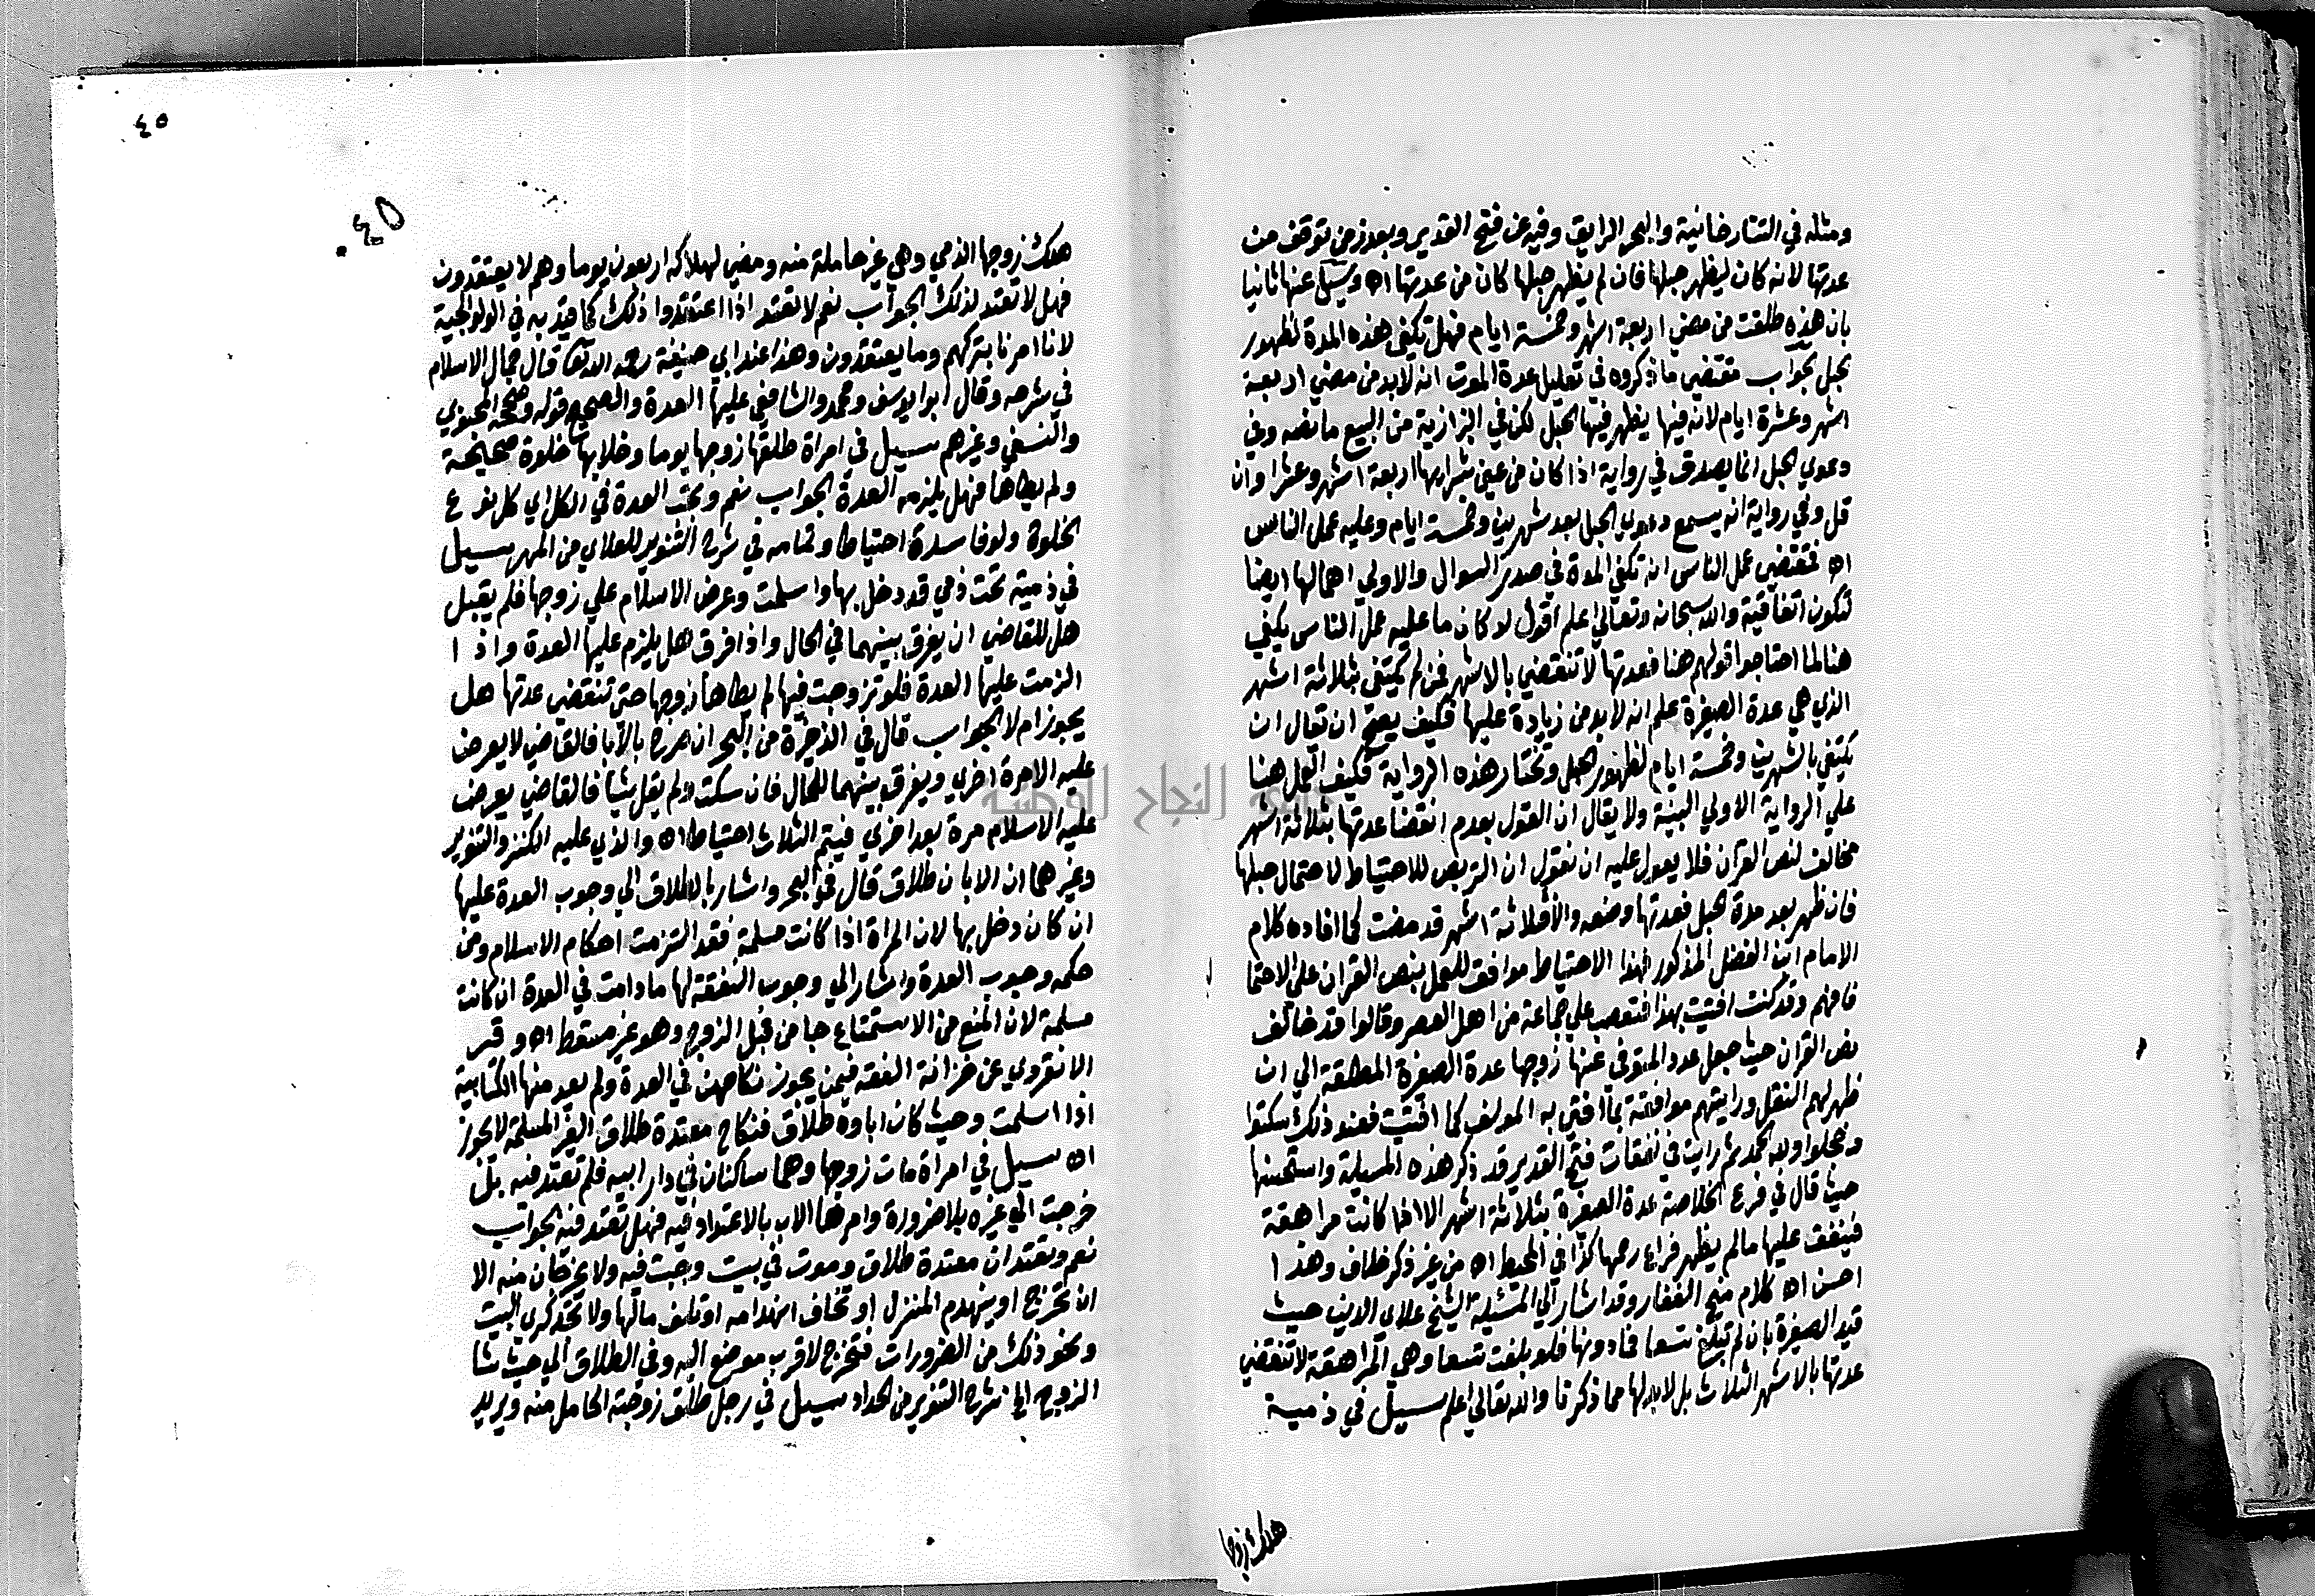 ومثله في التتارخانية والبحر الرايق وفيه عن فتح القدير وبعد زمن توقف من
عدتها لانه كان ليظهر حبلها فان لم يظهر حبلها كان من عدتها اه وسيل عنها ثانيا
بان هذه طلقت من مضي اربعة اشهر وخمسة ايام فهل تكفي هذه المدة لظهور
الحبل الجواب مقتضي ما ذكروه في تعليل عدة الموت انه لا بد من مضي اربعة
اشهر وعشرة ايام لانه فيها يظهر فيها الحبل لكن في البزازية من البيع ما نصه وفي
دعوي الحبل انما يصدق في رواية اذا كان من عين شرايها اربعة اشهر وعشرا وان
قل وفي رواية انه يسمع دعوي الحبل بعد شهرين وخمسة ايام وعليه عمل الناس
اه فمقتضي عمل الناس انه تكفي المدة في صدر السوال والاولي اهمالها ايضا
لتكون اتفاقية والله سبحانه وتعالي اعلم اقول لو كان ما عليه عمل الناس يكفي
هنا لما احتاجوا قولهم هنا فعدتها لا تنقضي بالاشهر فمن لم يكتفي بثلاثة اشهر
الذي هي عدة الصغيرة علم انه لا بد من زيادة عليها فكيف يصح ان تقال ان
يكتفي بالشهرين وخمسة ايام لظهور الحبل وتختار هذه الرواية فكيف العمل هنا
علي الرواية الاولي البينة ولا يقال ان القول بعدم انقضا عدتها بثلاثة اشهر
مخالف لنص القرآن فلا يعول عليه ان نقول ان التربص للاحتياط لاحتمال حبلها
فان ظهر بعد مدة الحبل فعدتها وضعه والا فثلاثة اشهر قد مضت كما افاده كلام
الامام ابن الفضل المذكور فهذا الاحتياط موافق للعمل بنص القران علي الاحتما
ل
فافهم وقد كنت افتيت بهذا فتعصب علي جماعة من اهل العصر وقالوا قد خالف
نص القران حيث جعل عدد المتوفى عنها زوجها عدة الصغيرة المطلقة الي ان
ظهر لهم النقل ورايتهم موافقة بما افتي به المولف كما افتيت فعند ذلك سكتوا
وخجلوا ولله الحمد ثم رايت في نفقات فتح القدير قد ذكر هذه المسيلة واستحسنها
حيث قال في فرع الخلاصة عدة الصغيرة بثلاثة اشهر الا اذا كانت مراهقة
فينفق عليها مالم يظهر فراغ رحمها كذا في المحيط اه من غير ذكر خلاف وهذا
احسن اه كلام منح الغفار وقد اشار الي المسئلة الشيخ علاي الدين حيث
قيد الصغيرة بان لم تبلغ تسعا فما دونها فلو بلغت تسعا وهي المراهقة لا تنقضي
عدتها بالاشهر الثلاث بل لا بد لها مما ذكرنا والله تعالي اعلم سيل في ذمية
هلك زوجها
٤٥
٤٥
هلك زوجها الذمي وهي غير حاملة منه ومضي لهلاكه اربعون يوما وهم لا يعتقدون
فهل لا تعتد لذلك الجواب نعم لا تعتد اذا اعتقدوا ذلك كما قيد به في الولوالجية
لانا امرنا بتركهم وما يعتقدون وهذا عند ابي حنيفة رحمه الله تعا قال جمال الاسلام
في شرحه وقال ابو ايوسف ومحمد والشافعي عليها العدة والصحيح قوله وصححه المحبوبي
والنسفي وغيرهم سيل في امراة طلقها زوجها يوما وخلا بها خلوة صحيحة
ولم يطاها فهل يلزمه العدة الجواب نعم وتجب العدة في الكل اي كل نوع
الخلوة ولو فاسدة احتياطا وتمامه في شرح التنوير للعلاي من المهر سيل
في ذمية تحت ذمي قد دخل بها واسلمت وعرض الاسلام علي زوجها فلم يقبل
هل للقاضي ان يفرق بينهما في الحال واذا فرق هل يلزم عليها العدة واذ ا
الزمت عليها العدة فلو تزوجت فيها لم يطاها زوجها حتي تنقضي عدتها هل
يجوز ام لا الجواب قال في الذخيرة من البحر ان صرح بالآبا فالقاضي لا يعرض
عليه الا مرة اخري ويفرق بينهما للحال فان سكت ولم يقل شيا فالقاضي يعرض
عليه الاسلام مرة بعد اخري فيتم الثلاث احتياطا اه والذي عليه الكنز والتنوير
وغيرهما ان الابا ن طلاق قال في البحر واشار بالطلاق الي وجوب العدة عليها
ان كان دخل بها لان المراة اذا كانت مسلمة فقد التزمت احكام الاسلام ومن
حكمه وجوب العدة واشار الي وجوب النفقة لها ما دامت في العدة ان كانت
مسلمة لان المنع من الاستمتاع جا من قبل الزوج وهو غير مسقط اه و قد
الانقروي عن خزانة الفقه فيمن يجوز نكاحهن في العدة ولم يعد منها الكتابية
اذا اسلمت وحيث كان اباوه طلاق فنكاح معتدة طلاق الغير المسلمة لا يجوز
اه سيل في امراة مات زوجها وهما ساكنان في دار ابيه فلم تعتد فيه بل
خرجت الي غيره بلا ضرورة وامرها الاب بالاعتداد فيه فهل تعتد فيه الجواب
نعم وتعتدان معتدة طلاق وموت في بيت وجبت فيه ولا يخرجان منه الا
ان تخرج او ينهدم المنزل او تخاف انهدامه او تلف مالها ولا تجد كري البيت
ونحو ذلك من الضرورات فتخرج لاقرب موضع اليه وفي الطلاق الي حيث شا
الزوج الخ شرح التنوير من الحداد سيل في رجل طلق زوجته الحامل منه ويريد